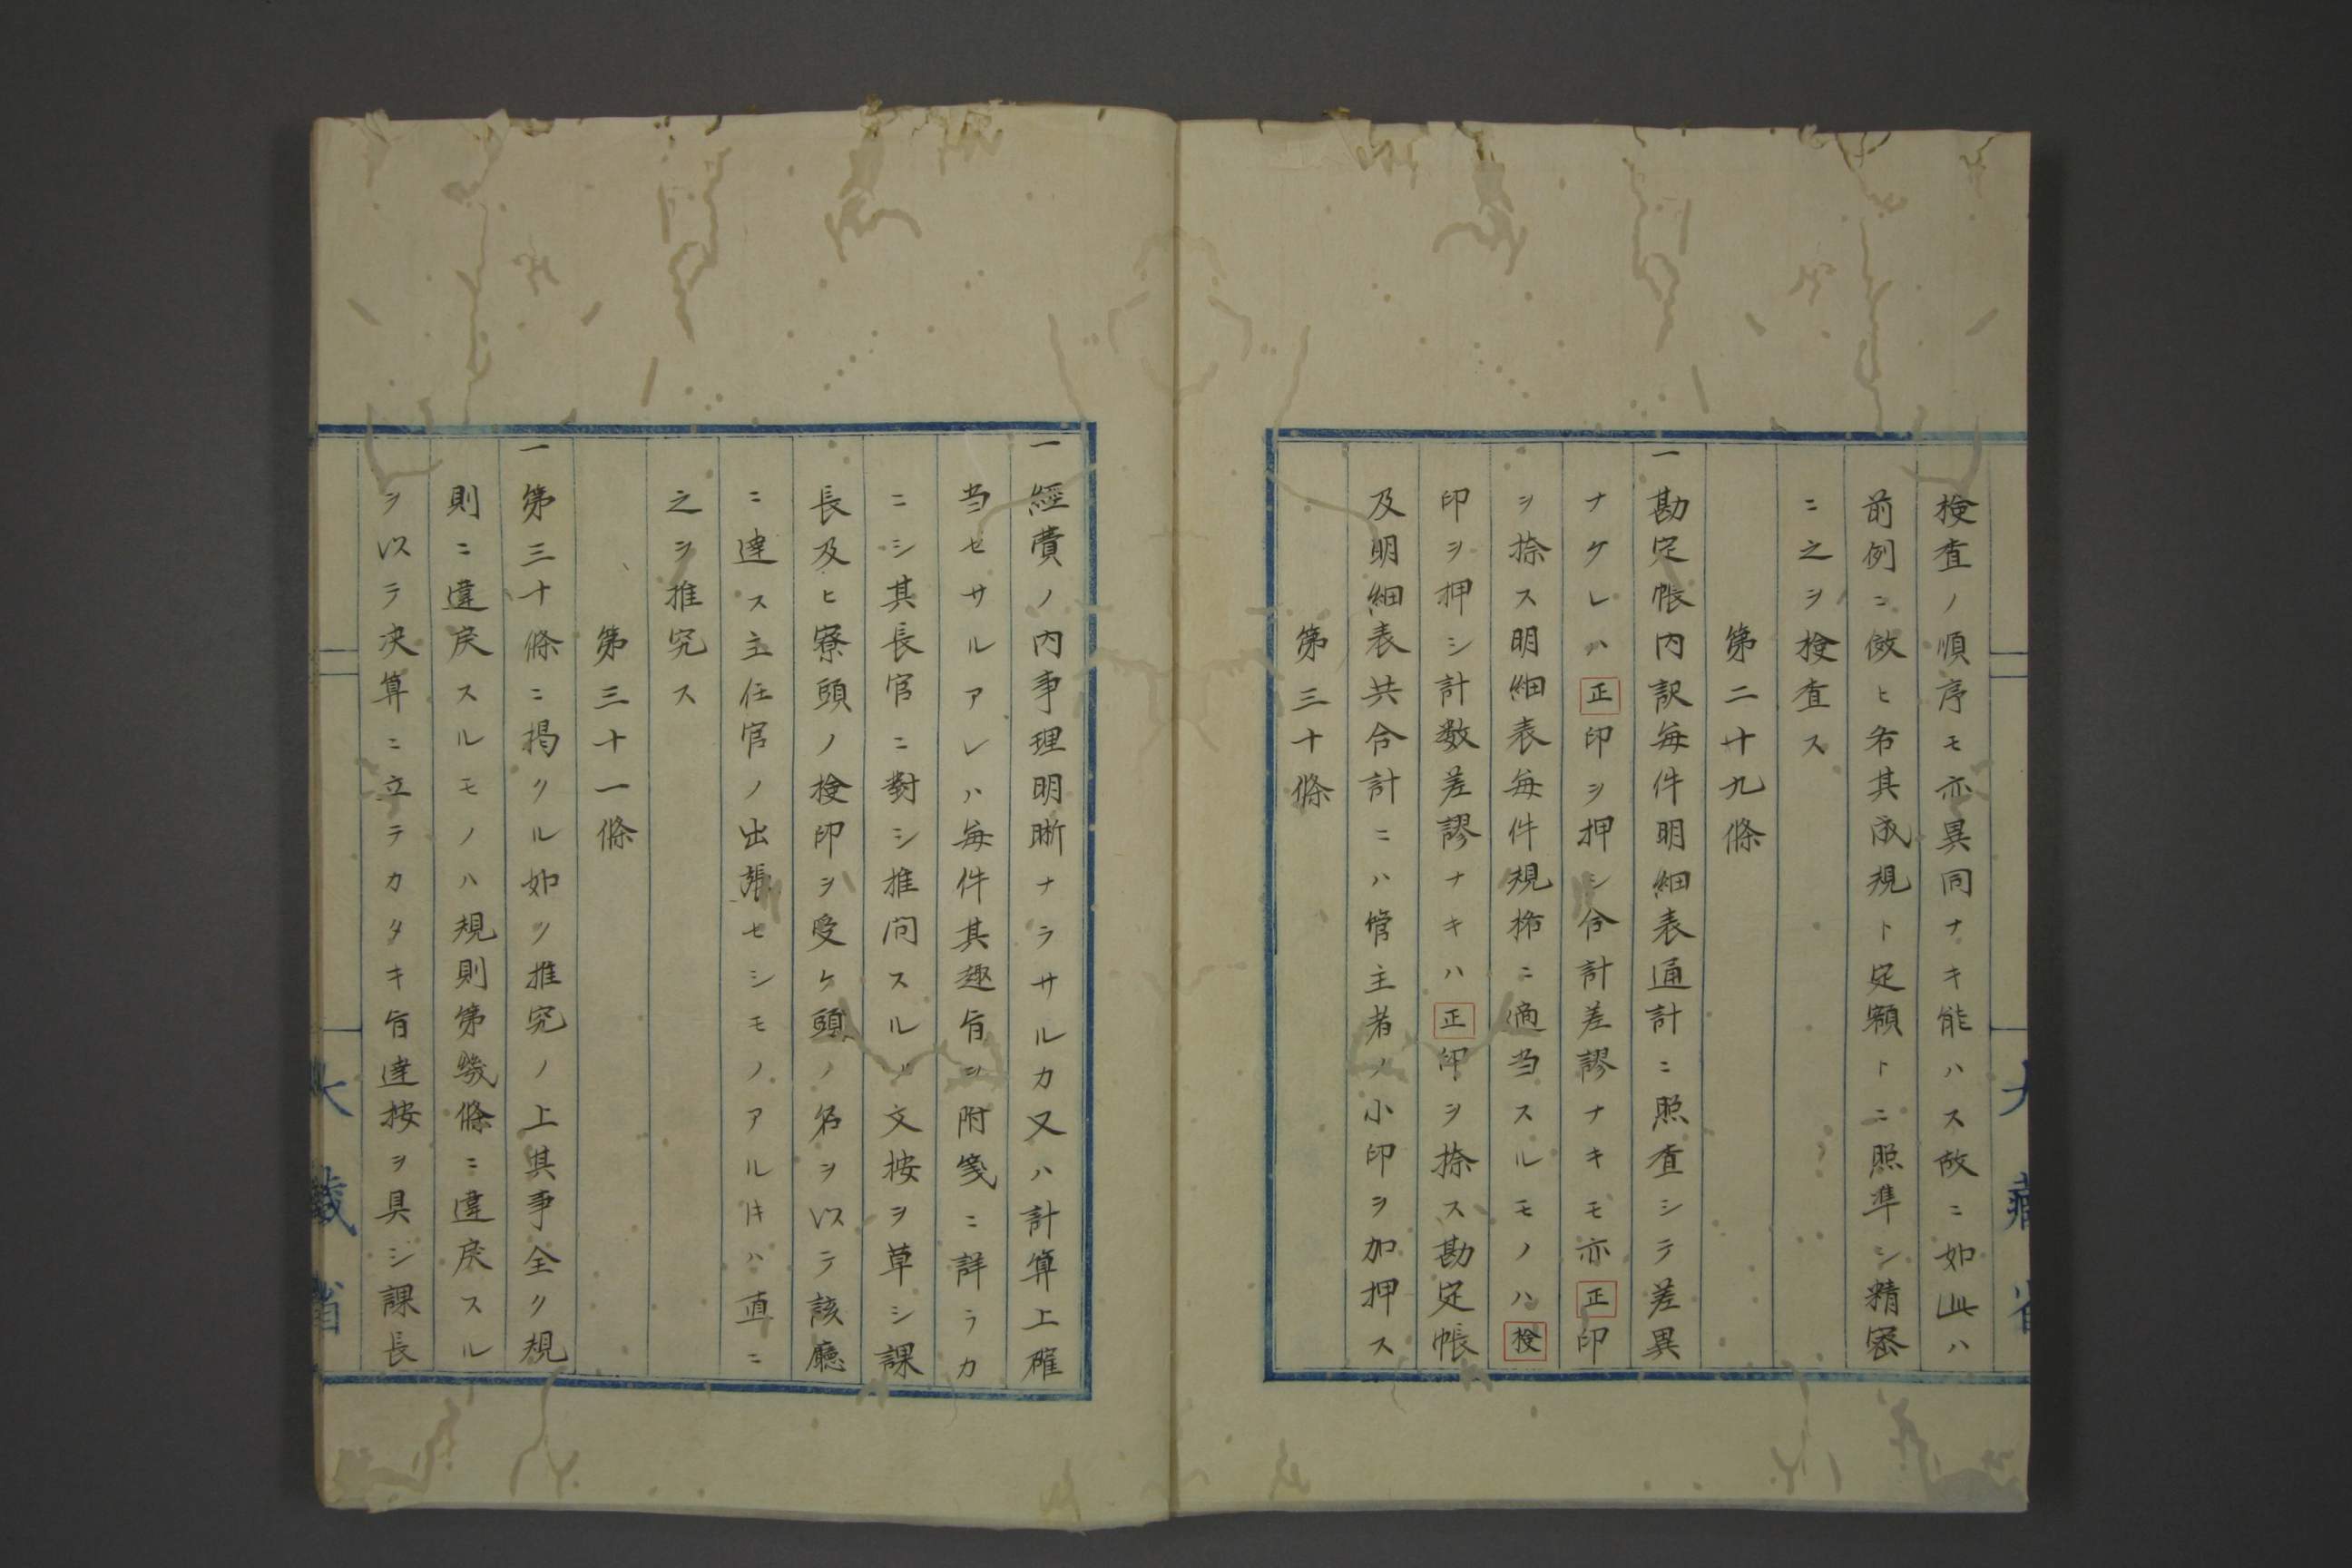 検査ノ順序モ亦異同ナキ能ハス故ニ如此ハ
前例ニ倣ヒ各其成規ト定額トニ照準シ精密
ニ之ヲ検査ス
第二十九條
一勘定帳内訳毎件明細表通計ニ照査シテ差異
ナケレハ正印ヲ押シ合計差謬ナキモ亦正印
ヲ捺ス明細表毎件規格ニ適当スルモノハ検
印ヲ押シ計数差謬ナキハ正印ヲ捺ス勘定帳
及明細表共合計ニハ管主者ノ小印ヲ加押ス
第三十條
一經費ノ内事理明晰ナラサルカ又ハ計算上確
当セサルアレハ毎件其趣旨ヲ附箋ニ詳ラカ
ニシ其長官ニ對シ推問スルノ文按ヲ草シ課
長及ヒ寮頭ノ検印ヲ受ケ頭ノ名ヲ以テ該廳
ニ達ス主任官ノ出張セシモノアルキハ直ニ
之ヲ推究ス
第三十一條
一第三十條ニ掲クル如ク推究ノ上其事全ク規
則ニ違戻スルモノハ規則第幾條ニ違戻スル
ヲ以テ決算ニ立テカタキ旨達按ヲ具シ課長
大藏省
大藏省